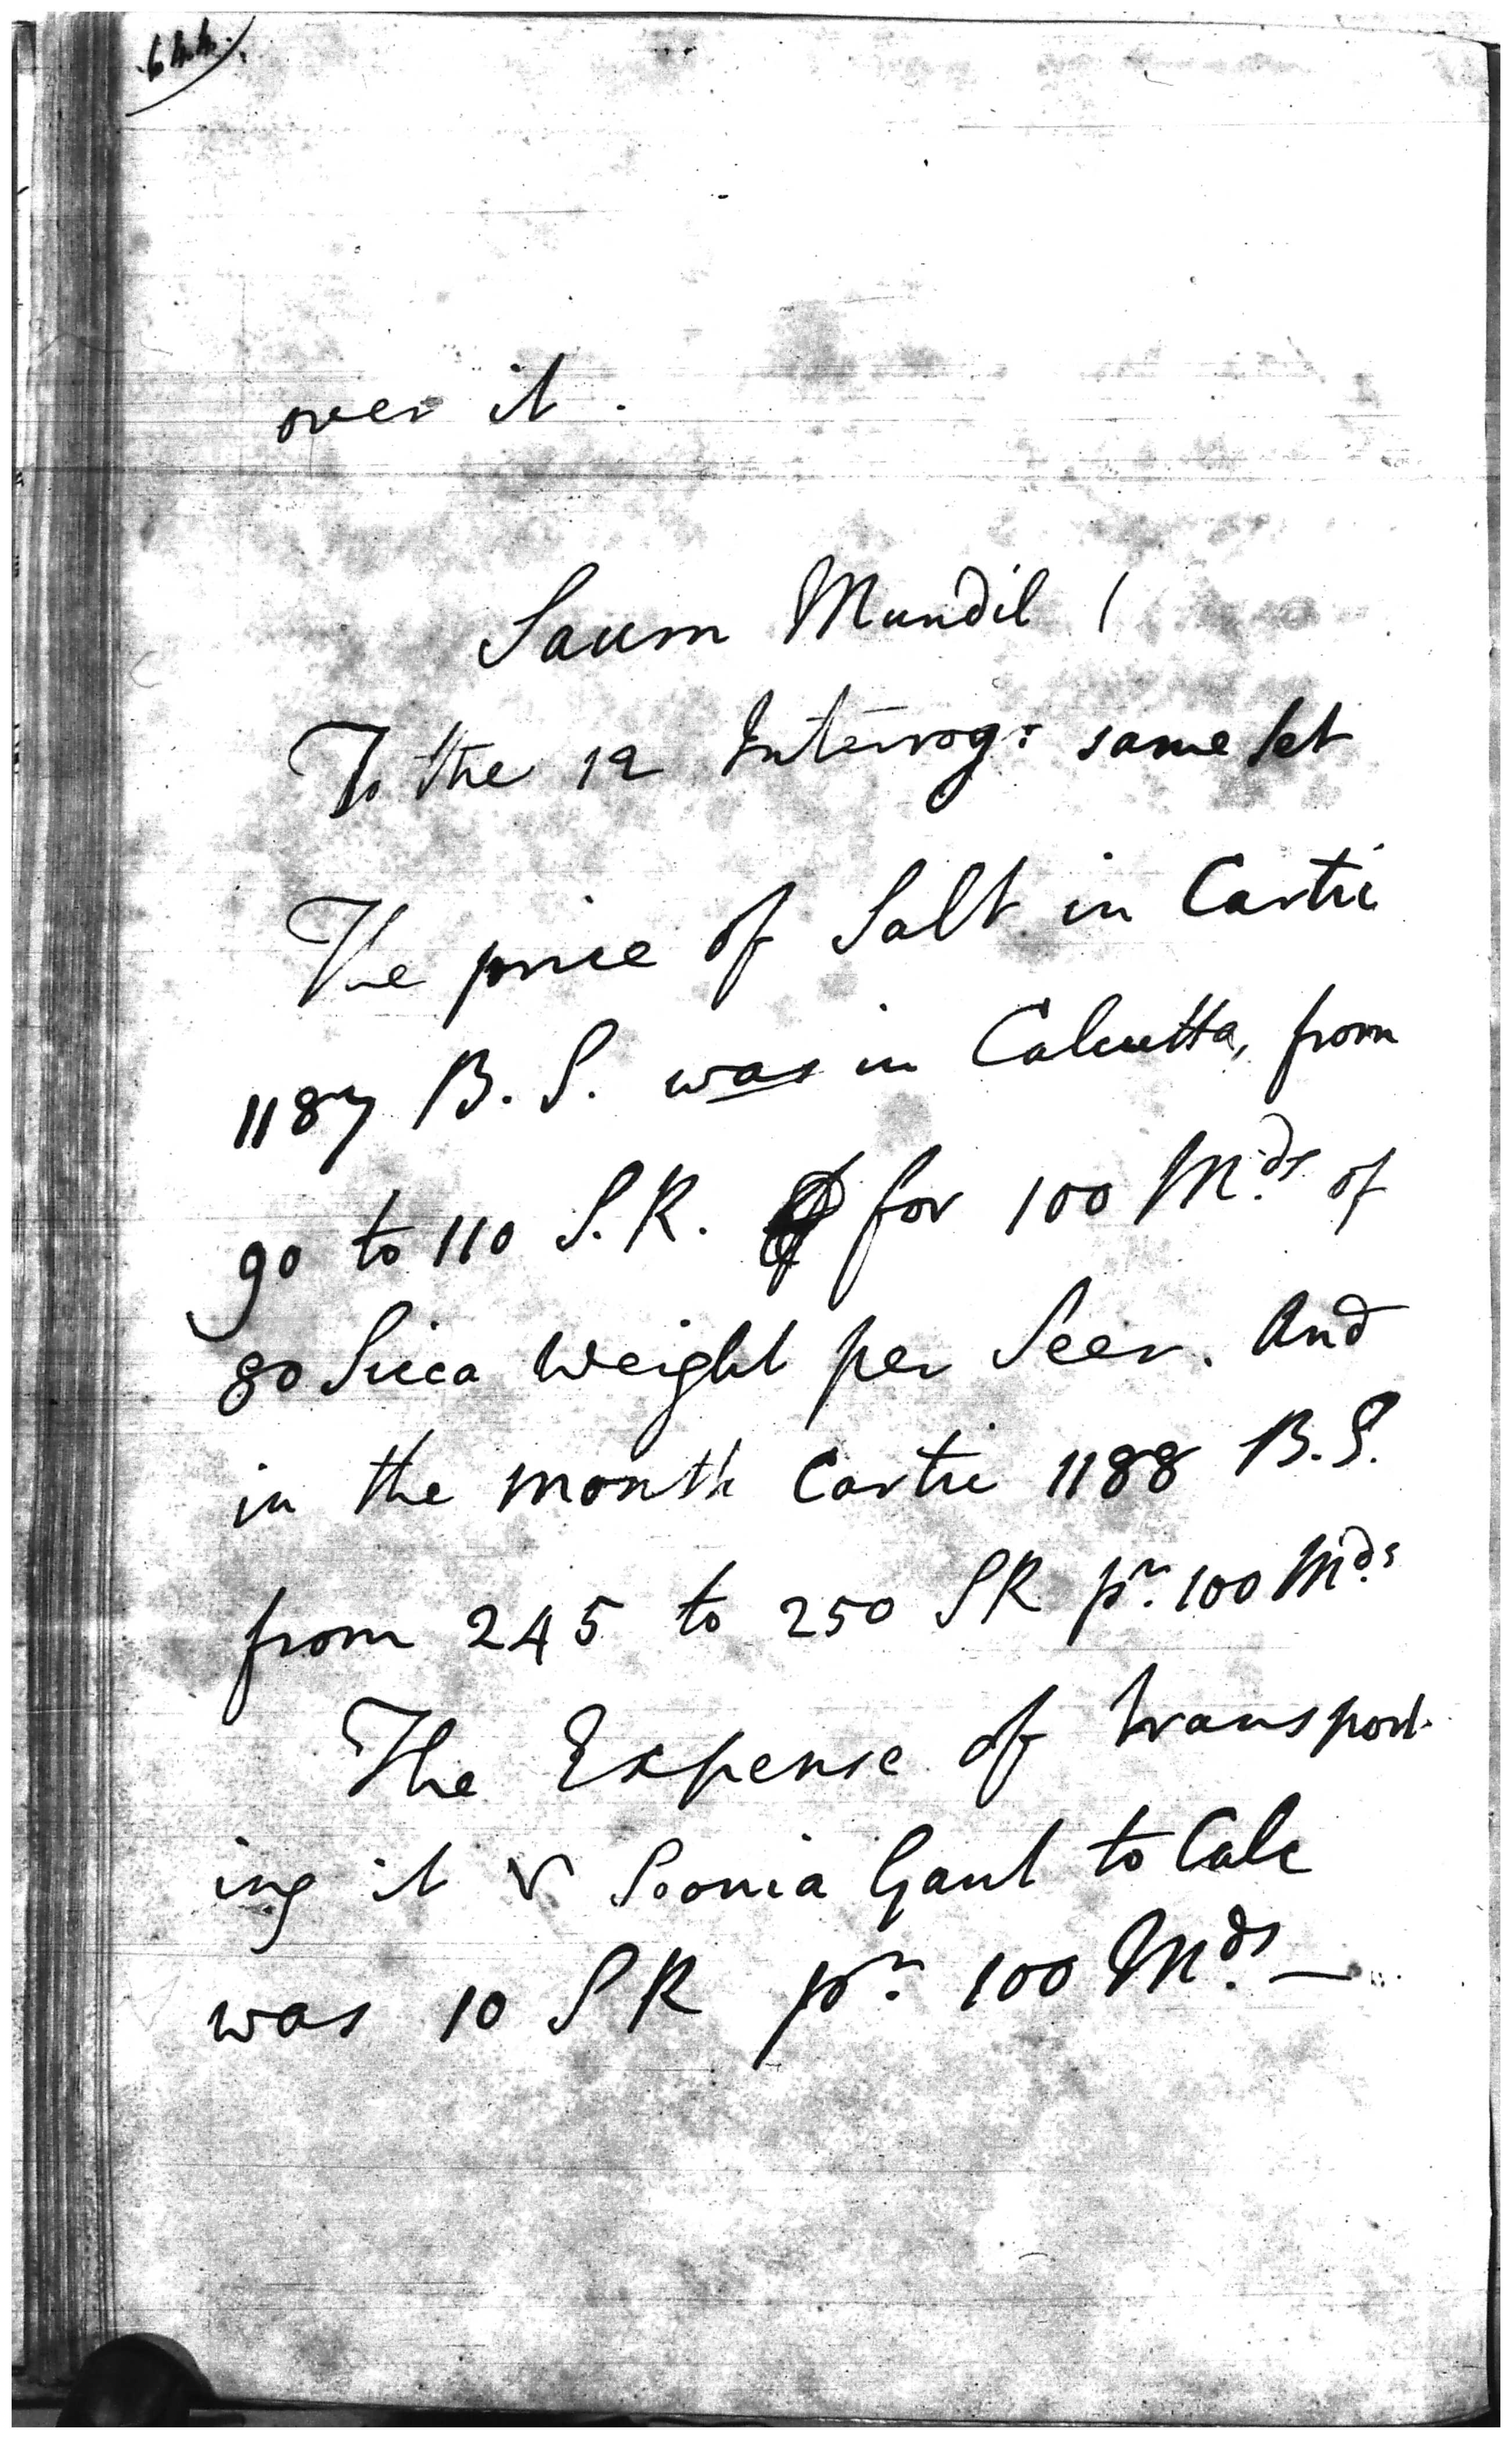 644.
over it.
Saum Mundil (
To the 12 Interrog: same set
The price of Salt in Cartic
1187 B. S. was in Calcutta, from
90 to 110 S. R. for 100 M.ds of
80 Sicca Weight per Seer. And
in the month Cartic 1188 B.S.
from 245 to 250 SR pr. 100 M.ds
The Expense of transport
ing it Gaut to Calc
was 10 SR pr. 100 M.ds —